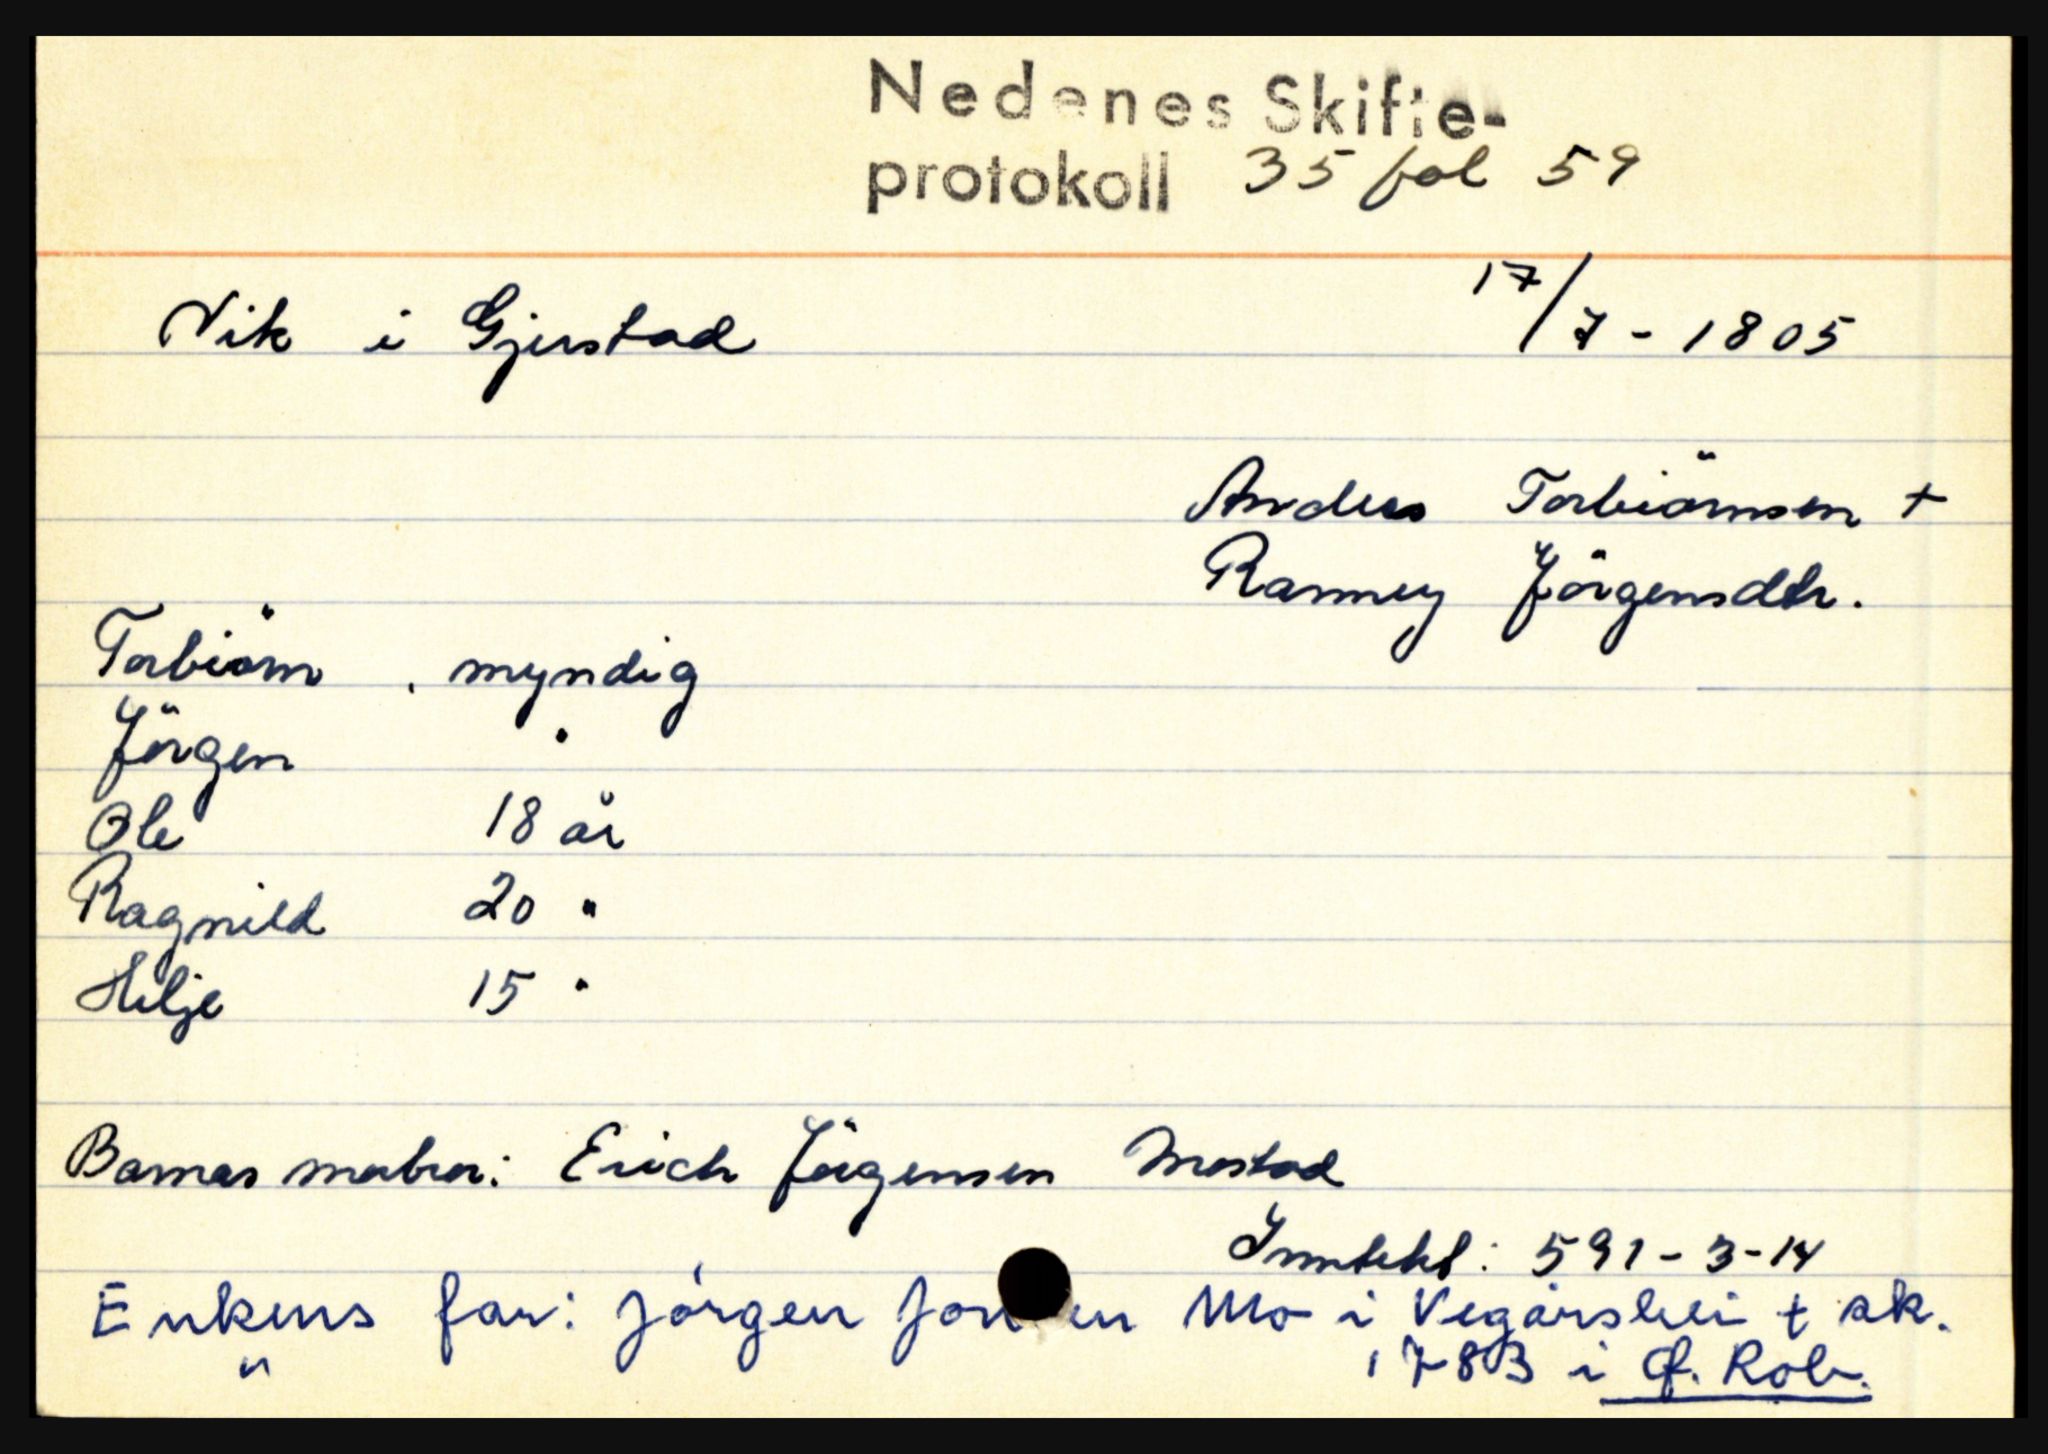 Nedenes Skifte-
protokoll 35 fol 59
Vik i Gjerstad 17/7 - 1805
Anders Torbiörnsen +
Ranney Jörgensdtr.
Torbiörn . myndig
Jörgen "
Ole 18 år
Ragnild 20 "
Helje 15 "
Barnas morbror: Erich Jörgensen Mostad
Inntekt: 591-3-14
Enkens far: Jórgen Jonsen Mo i Vegårshei + sk.
" 1783 i